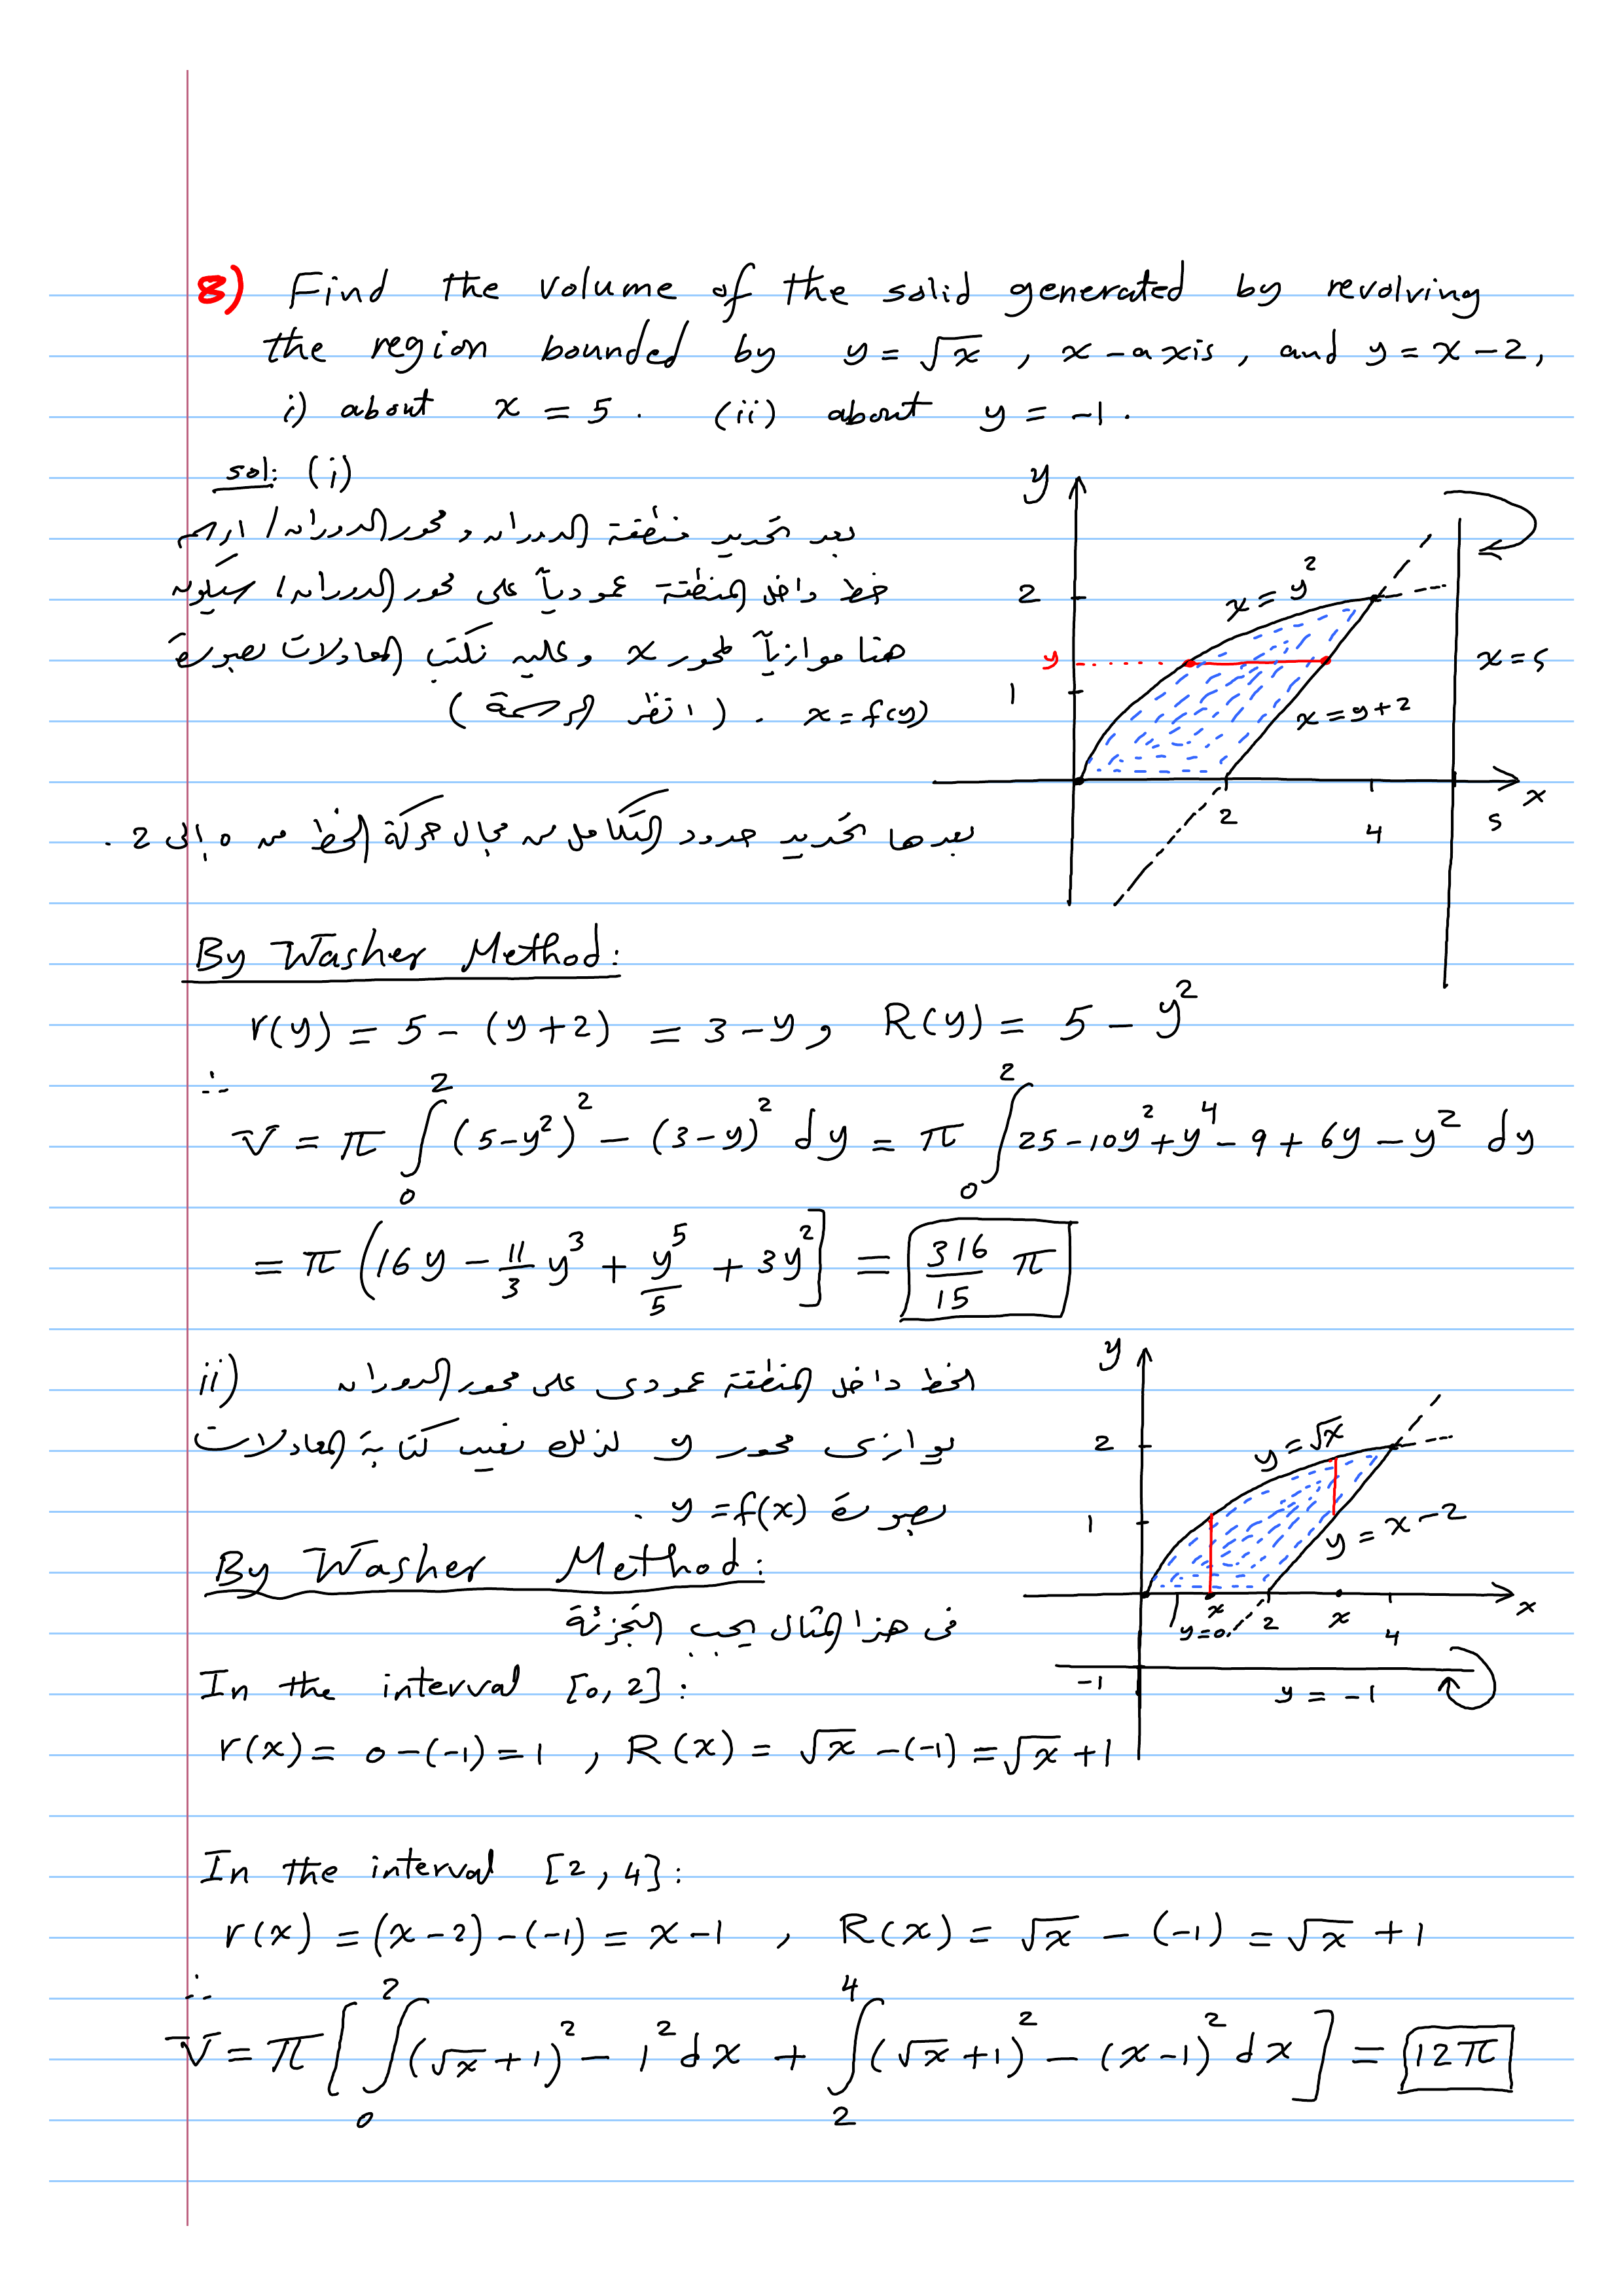 8) Find the volume of the solid generated by revolving
the region bounded by y = √x , x-axis, and y = x-2,
i) about x = 5 . (ii) about y = -1 .
sol: (i)
بعد تحديد منطقة الدوران و محور الدوران، ارسم
خط داخل المنطقة عمودياً على محور الدوران، سيكون
هنا موازياً لمحور x وعليه نكتب المعادلات بصورة
x = f(y) . (انظر الرسمة)
بعدها تحديد حدود التكامل من مجال حركة الخط من 0 إلى 2 .
y
2
x = y²
y
1
x = 5
x = y+2
2
4
5
x
By Washer Method:
r(y) = 5 - (y+2) = 3-y , R(y) = 5 - y²
∴
V = π ∫₀² (5-y²)² - (3-y)² dy = π ∫₀² 25-10y²+y⁴-9+6y-y² dy
= π (16y - 11/3 y³ + y⁵/5 + 3y²] = 316/15 π
ii) الخط داخل المنطقة عمودي على محور الدوران
يوازي محور y لذلك يجب كتابة المعادلات
بصورة y = f(x) .
y
2
y = √x
1
y = x-2
x
y=0
2
x
4
x
-1
y = -1
By Washer Method:
في هذا المثال يجب التجزئة
In the interval [0,2]:
r(x) = 0-(-1) = 1 , R(x) = √x -(-1) = √x +1
In the interval [2,4]:
r(x) = (x-2)-(-1) = x-1 , R(x) = √x - (-1) = √x +1
∴
V = π [ ∫₀² (√x+1)² - 1² dx + ∫₂⁴ (√x+1)² - (x-1)² dx ] = 12π